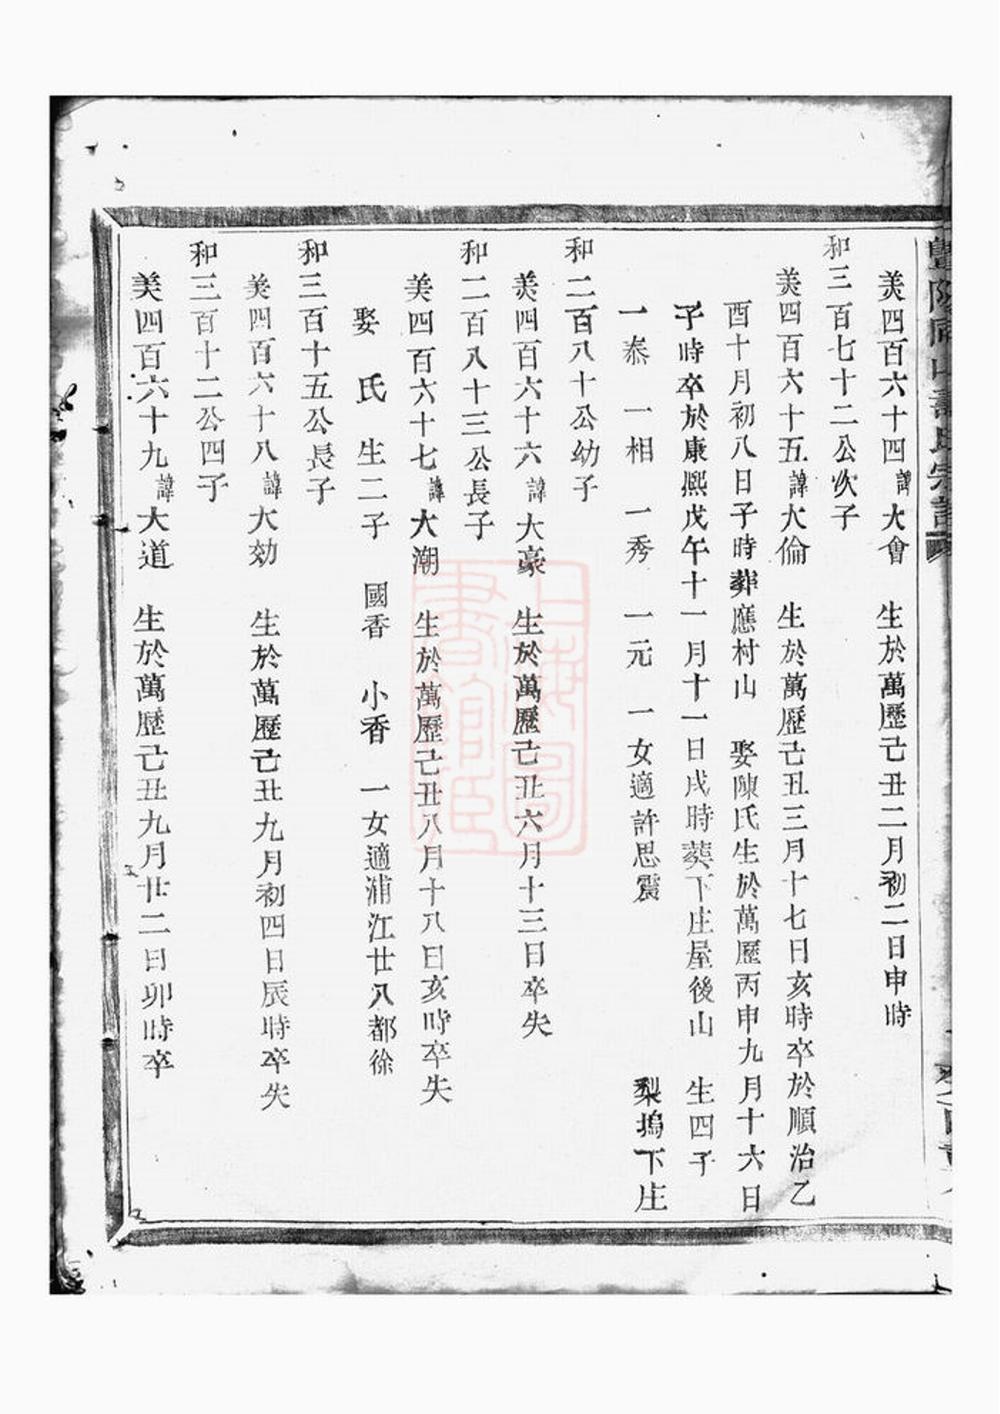 美四百六十四諱大會　生於萬歷己丑二月初二日申時
和三百七十二公次子
美四百六十五諱大倫　生於萬歷己丑三月十七日亥時卒於順治乙
酉十月初八日子時葬應村山　娶陳氏生於萬歷丙申九月十六日
子時卒於康熙戊午十一月十一日戌時葬下庄屋後山　生四子
一泰　一相　一秀　一元　一女適許思震　梨塢下庄
和二百八十公幼子
美四百六十六諱大豪　生於萬歷己丑六月十三日卒失
和二百八十三公長子
美四百六十七諱大潮　生於萬歷己丑八月十八日亥時卒失
娶　氏　生二子　國香　小香　一女適浦江廿八都徐
和三百十五公長子
美四百六十八諱大効　生於萬歷己丑九月初四日辰時卒失
和三百十二公四子
美四百六十九諱大道　生於萬歷己丑九月廿二日卯時卒
上海圖書館藏